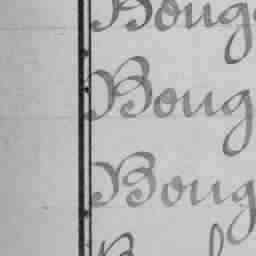 Boug
Boug
Boug